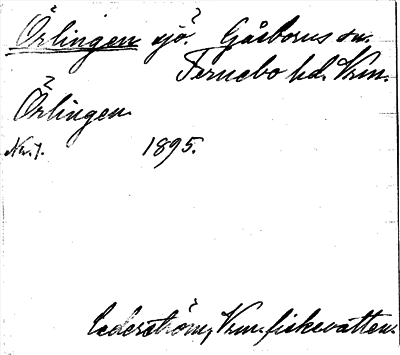 Örlingen sjö? Gåsborns sn.
Fernebo hd. Vrm.
Örlingen
Nr. 7. 1895.
Cederström, Vrm. fiskevatten.